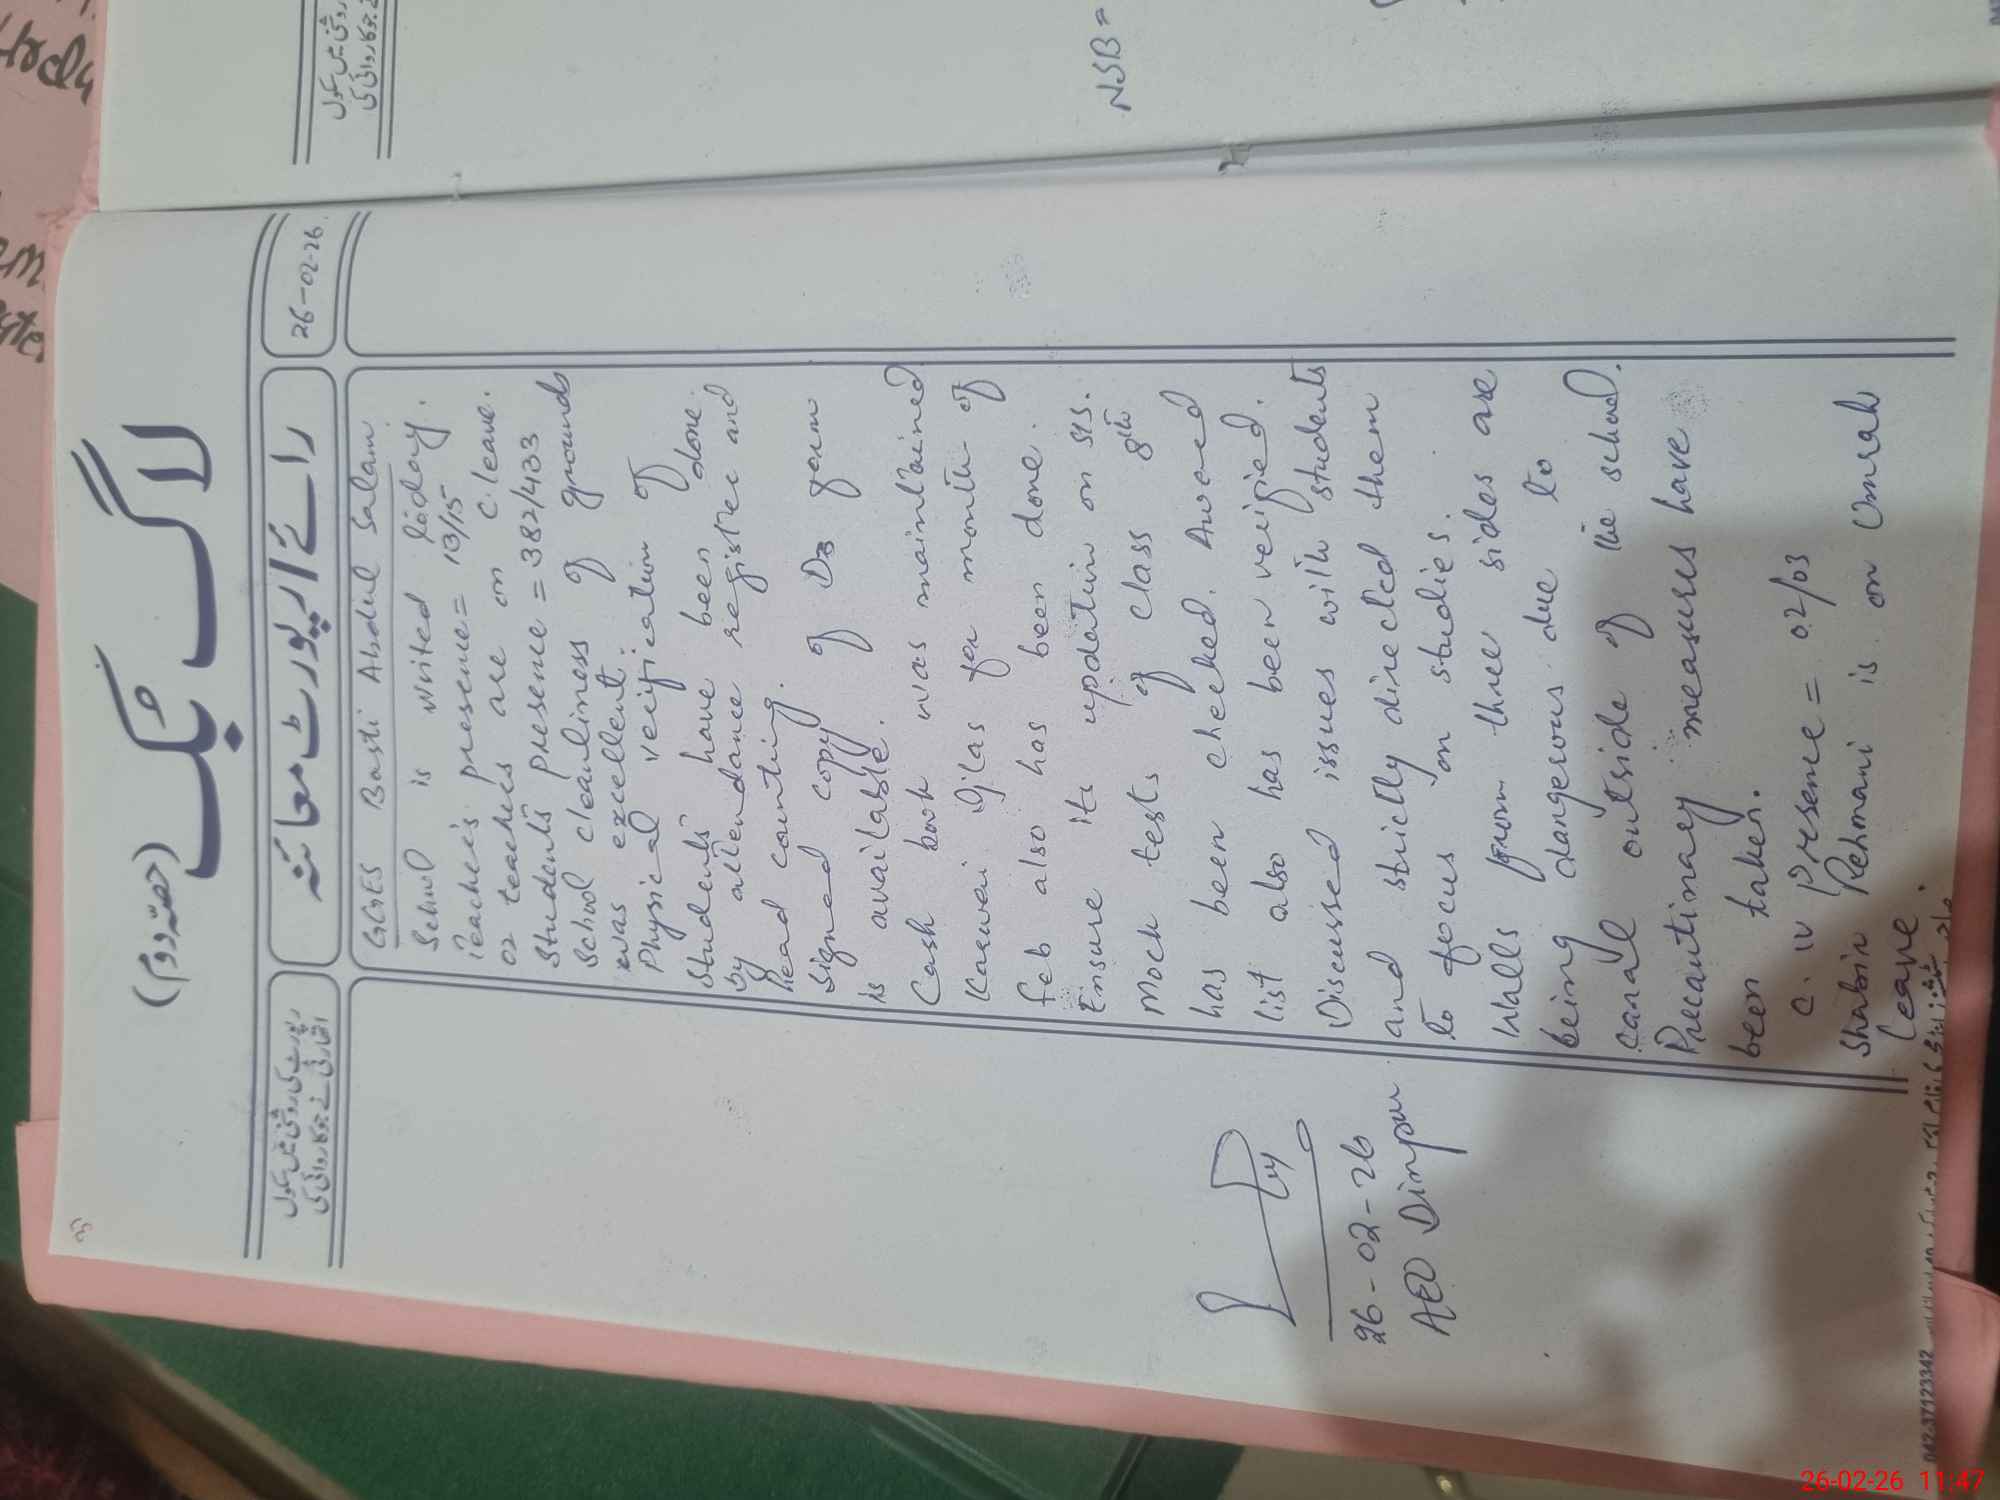 لاگ بک
(حصہ دوم)
26-02-26
رائے / رپورٹ معائنہ
رپورٹ کی روشنی میں سکول
اتھارٹی نے جو کاروائی کی
GGES Basti Abdul Salam
School is visited today.
Teachers presence = 13/15
02 teachers are on C. leave.
Students presence = 382/433
School cleanliness of grounds
was excellent.
Physical verification of
students have been done
by attendance register and
head counting.
Signed copy of Ds form
is available.
Cash book was maintained
Karwai files for month of
Feb also has been done.
Ensure its updation on SIS.
Mock tests of class 8th
has been checked. Award
list also has been verified.
Discussed issues with students
and strictly directed them
to focus on studies.
Walls from three sides are
being dangerous due to
canal outside of the school.
Precautionary measures have
been taken.
C. iv Presence = 02/03
Rehmani is on Umrah
leave.
26-02-26
AEO Dimpur
042-37123342
NSB =
میں سکول
جو کاروائی کی
26-02-26 11:47